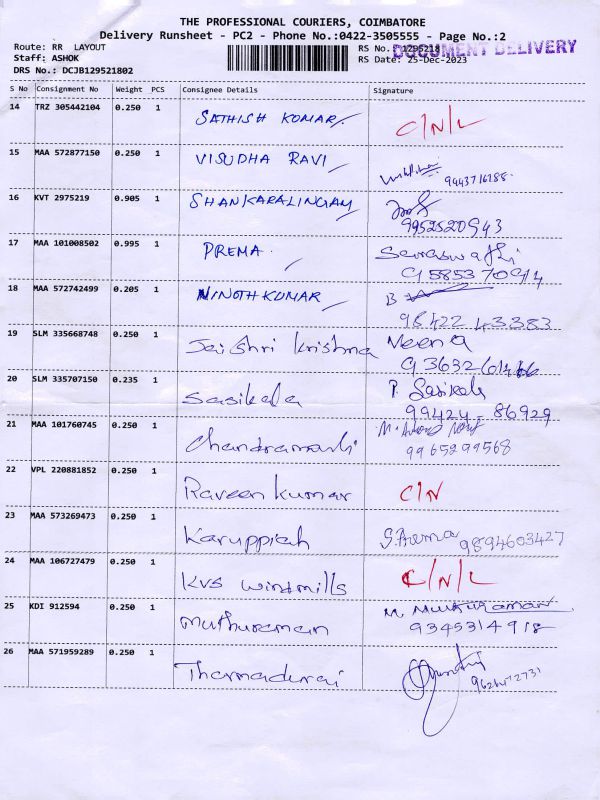 THE PROFESSIONAL COURIERS, COIMBATORE
Delivery Runsheet - PC2 - Phone No.:0422-3505555 - Page No.:2
Route: RR LAYOUT
RS No.: 1295218
DOCUMENT DELIVERY
Staff: ASHOK
RS Date: 25-Dec-2023
DRS No.: DCJB129521802
S No Consignment No Weight PCS Consignee Details Signature
14 TRZ 305442104 0.250 1 SATHISH KUMAR C/N/L
15 MAA 572877150 0.250 1 VISUDHA RAVI
9443716288
16 KVT 2975219 0.905 1 SHANKARALINGAM
9952520943
17 MAA 101008502 0.995 1 PREMA Saraswathi
18 MAA 572742499 0.205 1 VINOTHKUMAR B
98422 43383
19 SLM 335668748 0.250 1 Jai Shri krishna Meena
20 SLM 335707150 0.235 1 Sasikala P. Sasikala
99424-86929
21 MAA 101760745 0.250 1 M.
9965299568
22 VPL 220881852 0.250 1 Raveen kumar C/N
23 MAA 573269473 0.250 1 Karuppiah S.Prema 9894603427
24 MAA 106727479 0.250 1 KVS windmills C/N/L
25 KDI 912594 0.250 1 muthuraman M. Muthuraman
9345314918
26 MAA 571959289 0.250 1 Thamadurai